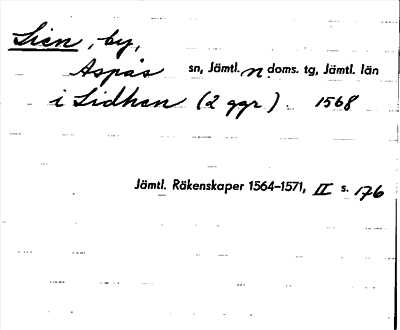 Lien, by,
Aspås sn, Jämtl. n doms. tg, Jämtl. län
i Lidhen (2 ggr) 1568
Jämtl. Räkenskaper 1564-1571, II s. 176